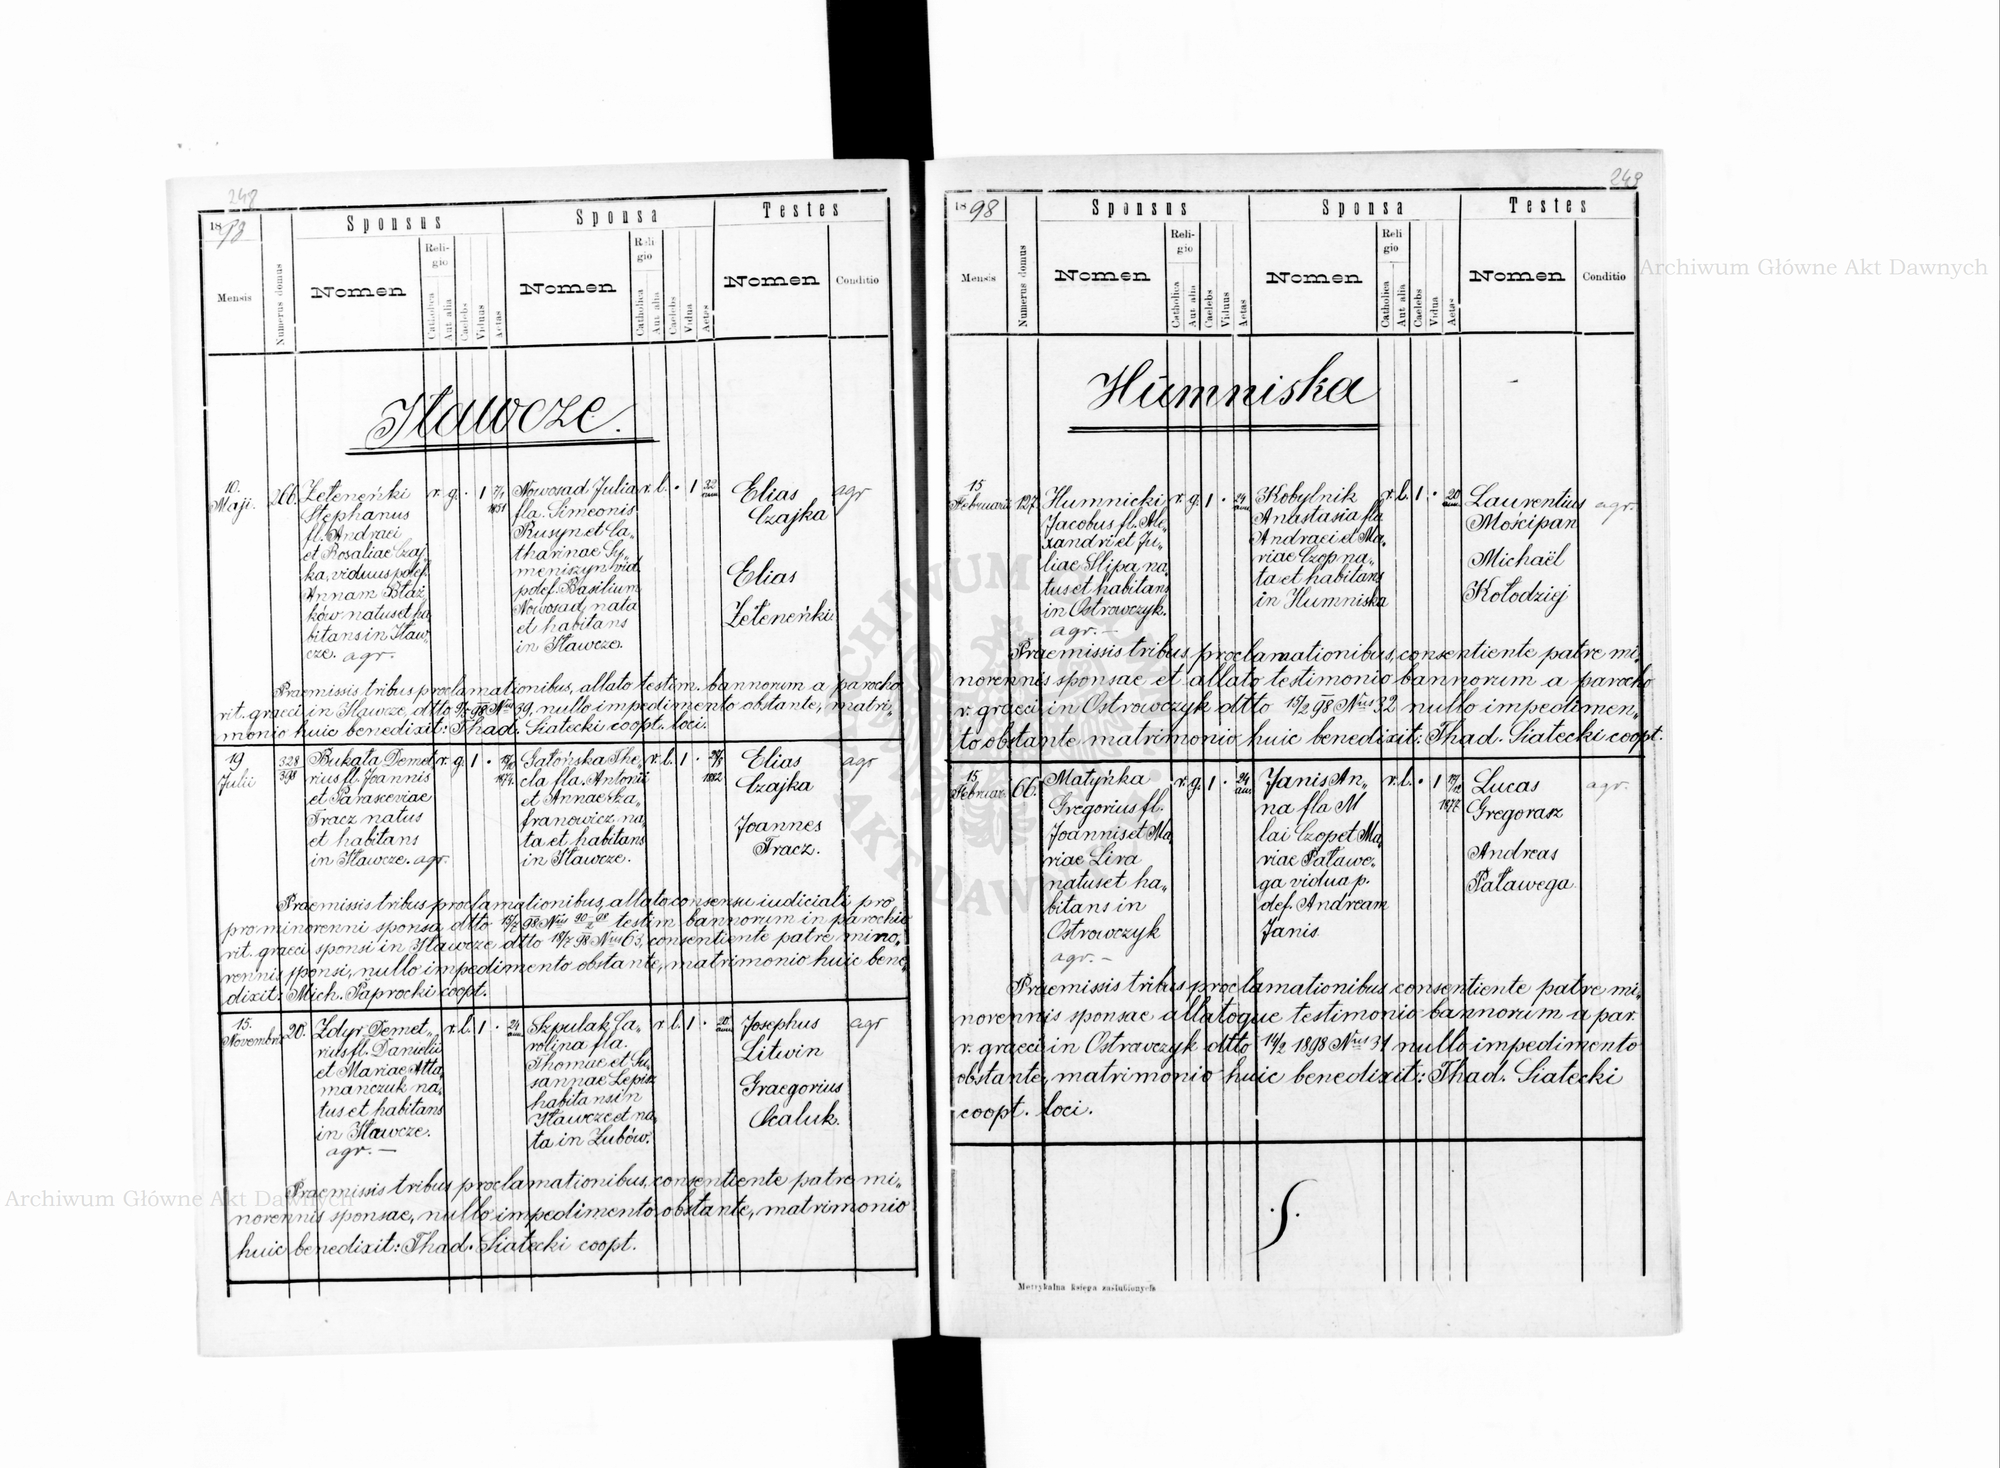 248
1898
Sponsus
Sponsa
Testes
Mensis
Numerus domus
Nomen
Religio
Catholica
Aut alia
Caelebs
Viduus
Aetas
Nomen
Religio
Catholica
Aut alia
Caelebs
Vidua
Aetas
Nomen
Conditio
Iławcze.
10.
Maji.
266.
Zeteneńki
Stephanus
fl. Andraei
et Rosaliae Czaj
ka, viduus p. def.
Annam Błaż
ków natus et ha
bitans in Iław„
cze. agr.
r. g. · 1
1851
Nowosad Julia
fla. Simeonis
Rusyn et Ca„
tharinae Sy„
meniszyn vid.
p. def. Basilium
Nowosad, nata
et habitans
in Iławcze.
r. l. · 1 32
ann
Elias
Czajka
Elias
Zeteneńki
agr
Praemissis tribus proclamationibus, allato testim. bannorum a parocho
rit. graeci in Iławcze, dtto 9/5 98 Nrus 39, nullo impedimento obstante, matri„
monio huic benedixit: Thad. Siatecki coopt. loci.
19
Julii
328
398
Bukata Demet
rius fl. Joannis
et Parasceviae
Tracz natus
et habitans
in Iławcze. agr.
r. g. 1 ·
Satońska The„
cla fla. Antonii
et Annae Sza„
franowicz na„
ta et habitans
in Iławcze.
r. l. 1 ·
Elias
Czajka
Joannes
Tracz.
agr
Praemissis tribus proclamationibus, allato consensu iudiciali pro
pro minorenni sponsa, dtto 98 Nrus testim bannorum in parochia
rit. graeci sponsi in Iławcze dtto 18/7 98 Nrus 63, consentiente patre mino„
rennis sponsi, nullo impedimento obstante, matrimonio huic bene„
dixit: Mich. Paprocki coopt.
15.
Novembris
20.
Zdyr Demet„
rius fl. Danielis
et Mariae Atta
manczuk na„
tus et habitans
in Iławcze.
agr. —
r. l. 1 · 24
ann
Szpulak Ca„
rolina fla.
Thomae et Su„
sannae Lepisz
habitans in
Iławcze et na„
ta in Zubów.
r. l. 1 · 20
ann
Josephus
Litwin
Graegorius
Scaluk.
agr
Praemissis tribus proclamationibus, consentiente patre mi„
norennis sponsae, nullo impedimento obstante, matrimonio
huic benedixit: Thad. Siatecki coopt.
249
1898
Sponsus
Sponsa
Testes
Mensis
Numerus domus
Nomen
Religio
Catholica
Aut alia
Caelebs
Viduus
Aetas
Nomen
Religio
Catholica
Aut alia
Caelebs
Vidua
Aetas
Nomen
Conditio
Humniska
15
Februarii
127
Humnicki
Jacobus fl. Ale„
xandri et Ju„
liae Slipa, na„
tus et habitans
in Ostrowczyk.
agr. —
r. g. 1 · 24
ann
Kobylnik
Anastasia fla
Andraei et Ma„
riae Czop na„
ta et habitans
in Humniska
r. l. 1 · 20
ann
Laurentius
Mościpan
Michaël
Kołodziej
agr.
Praemissis tribus proclamationibus, consentiente patre mi„
norennis sponsae et allato testimonio bannorum a parocho
r. graeci in Ostrowczyk dtto 15/2 98 Nrus 32 nullo impedimen„
to obstante matrimonio huic benedixit: Thad. Siatecki coopt.
15
Februar.
66.
Matyńka
Gregorius fl.
Joannis et Ma„
riae Lira
natus et ha„
bitans in
Ostrowczyk
agr. —
r. g. 1 · 24
ann
Janis An„
na fla M
lai Czop et Ma„
riae Patawe„
ga vidua p.
def. Andream
Janis
r. l. · 1
1877
Lucas
Gregorasz
Andreas
Patawega
agr.
Praemissis tribus proclamationibus, consentiente patre mi„
norennis sponsae allatoque testimonio bannorum a par.
r. graeci in Ostrawczyk dtto 14/2 1898 Nrus 31 nullo impedimento
obstante, matrimonio huic benedixit: Thad. Siatecki
coopt. loci.
Metrykalna księga zaślubionych
Archiwum Główne Akt Dawnych
Archiwum Główne Akt Dawnych
ARCHIWUM GŁÓWNE AKT DAWNYCH